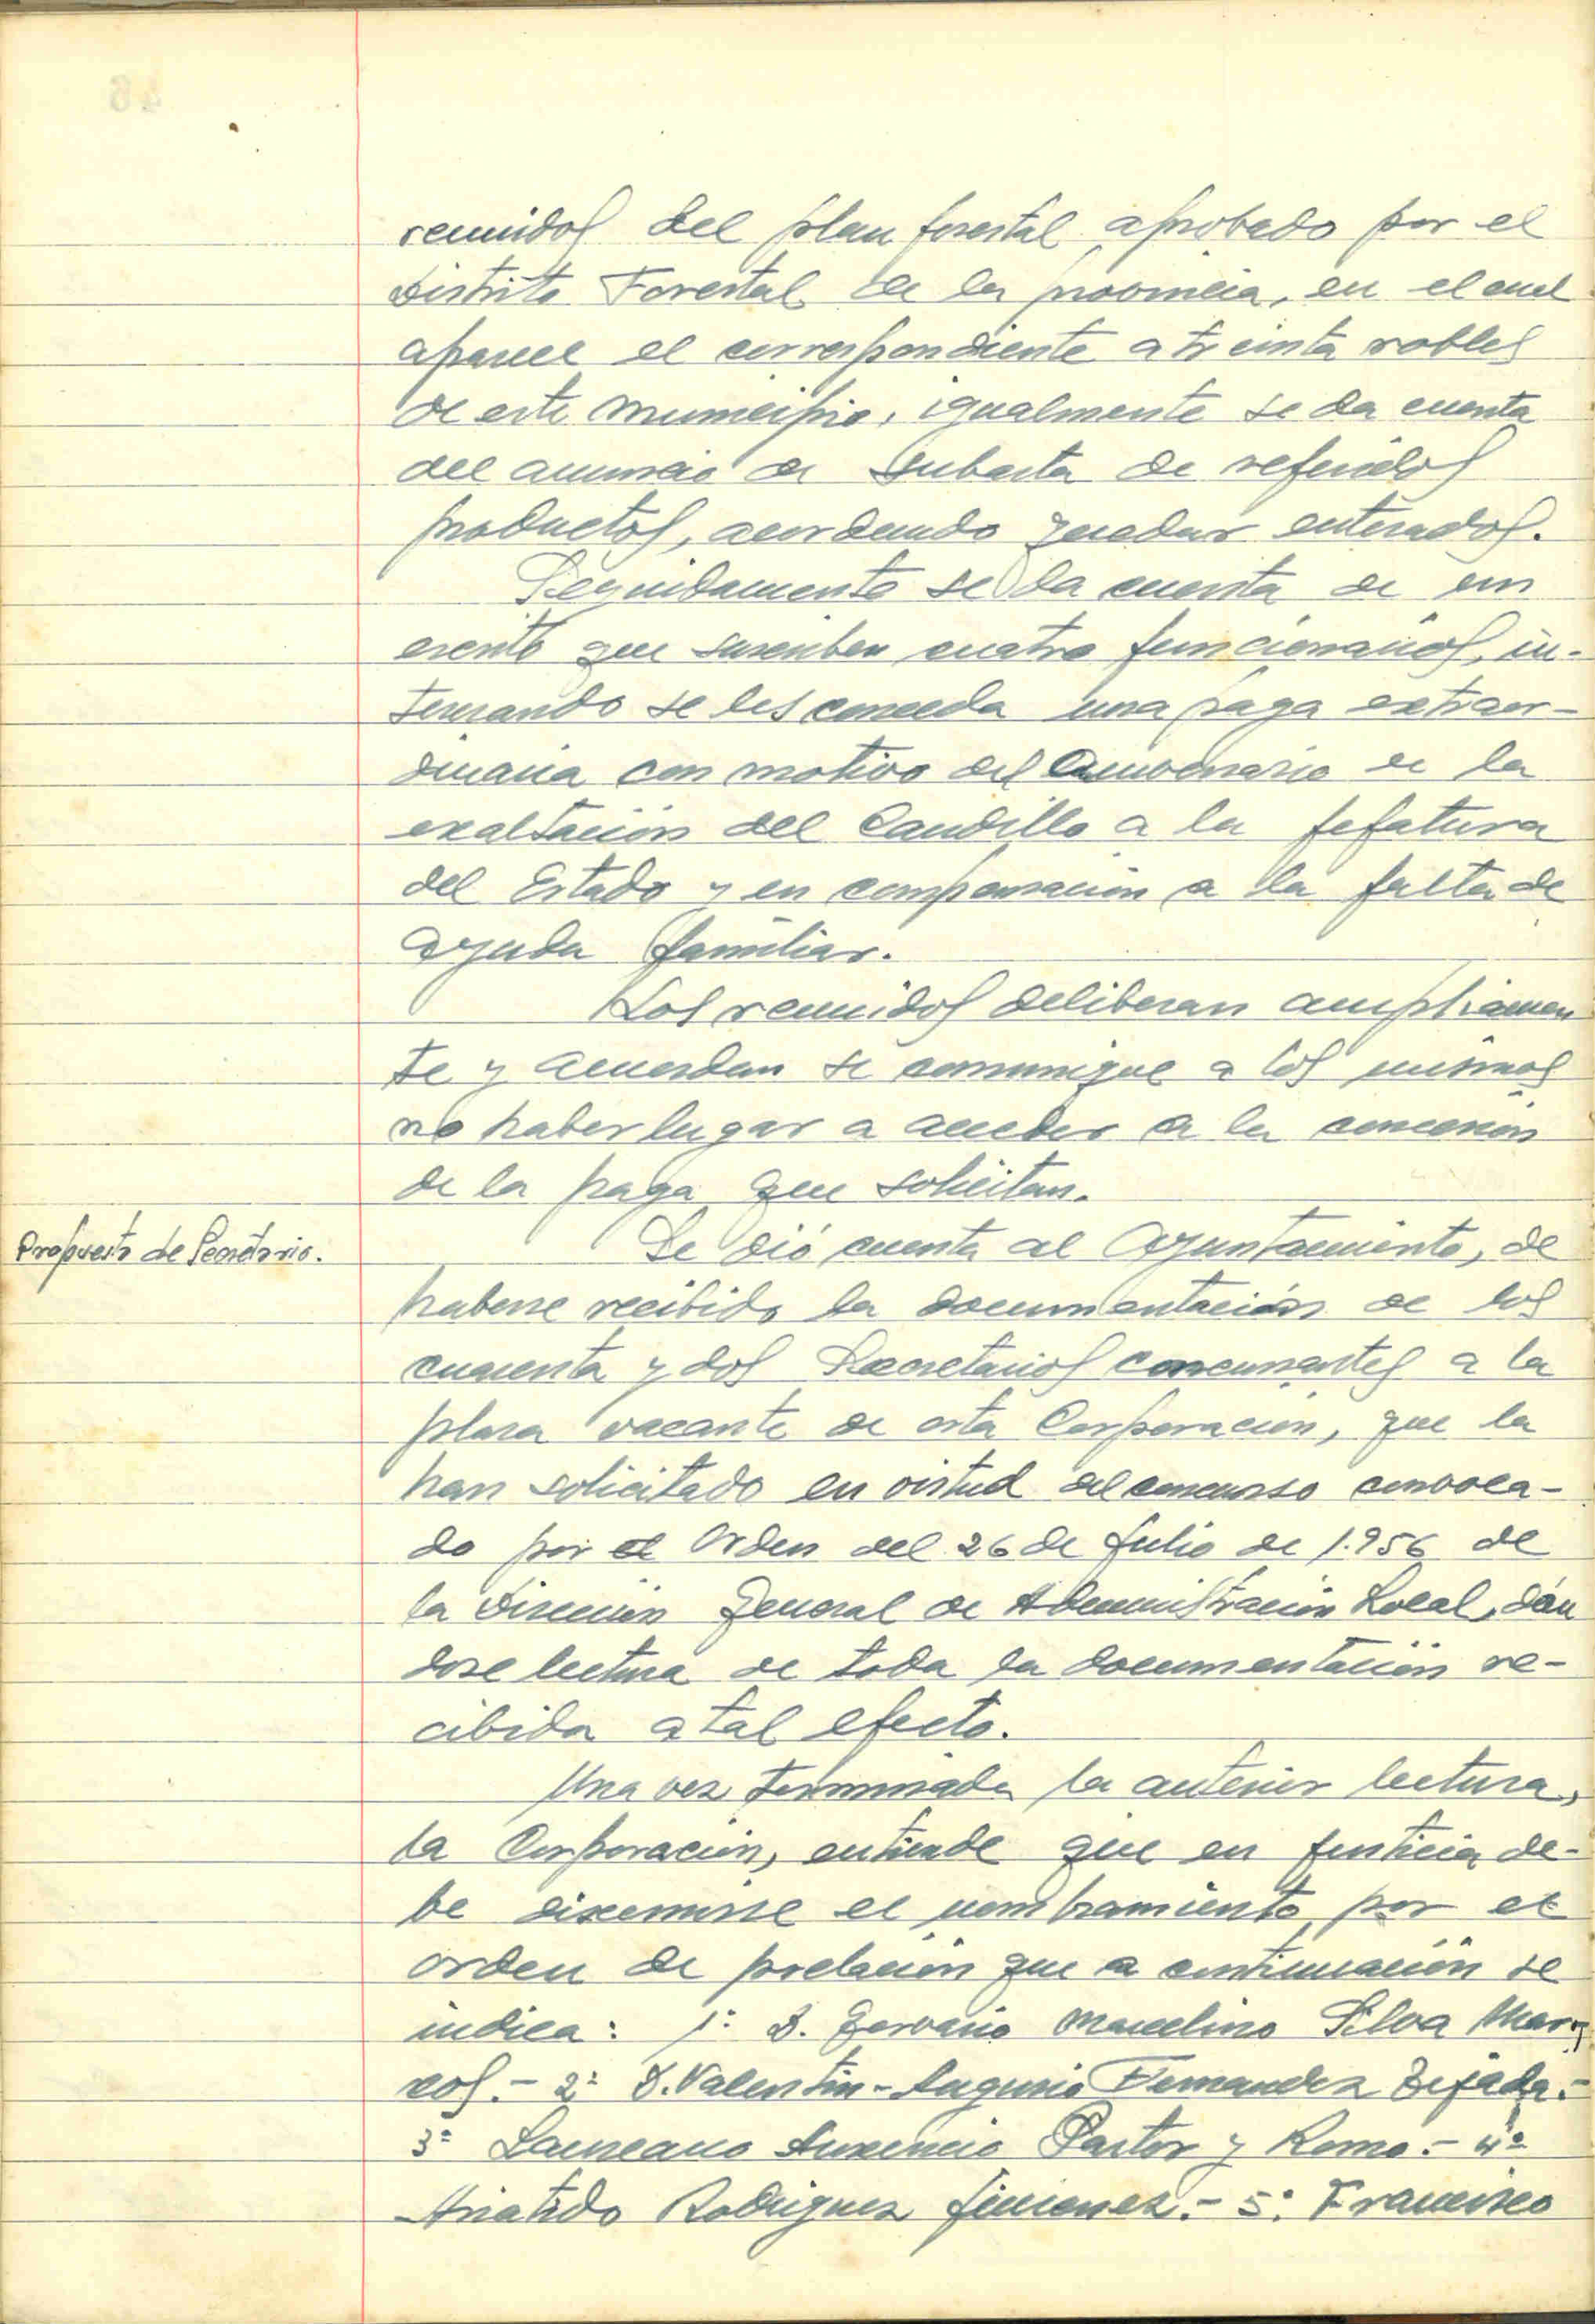 reunidos del plan forestal aprobado por el
Distrito Forestal de la provincia, en el cual
aparece el correspondiente a treinta robles
de este municipio, igualmente se da cuenta
del anuncio de subasta de referidos
productos, acordando quedar enterados.
Seguidamente se da cuenta de un
escrito que suscriben cuatro funcionarios, in-
teresando se les conceda una paga extraor-
dinaria con motivo del Aniversario de la
exaltación del Caudillo a la Jefatura
del Estado y en compensación a la falta de
ayuda familiar.
Los reunidos deliberan ampliamen
te y acuerdan se comunique a los mismos
no haber lugar a acceder a la concesión
de la paga que solicitan.
Propuesta de Secretario.
Se dió cuenta al Ayuntamiento, de
haberse recibido la documentación de los
cuarenta y dos Secretarios concursantes a la
plaza vacante de esta Corporación, que la
han solicitado en virtud del concurso convoca-
do por el Orden del 26 de Julio de 1.956 de
la Dirección General de Administración Local, dán
dose lectura de toda la documentación re-
cibida a tal efecto.
Una vez terminada la anterior lectura,
la Corporación, entiende que en justicia de-
be discernirse el nombramiento por el
orden de prelación que a continuación se
indica: 1º D. Gervasio Marcelino Silva Mar
cos.- 2º D. Valentin- Fernandez Tejada.-
3º Laureano Auxencio Pastor y Romo.- 4º
Rodriguez Jimenez.- 5º Francisco